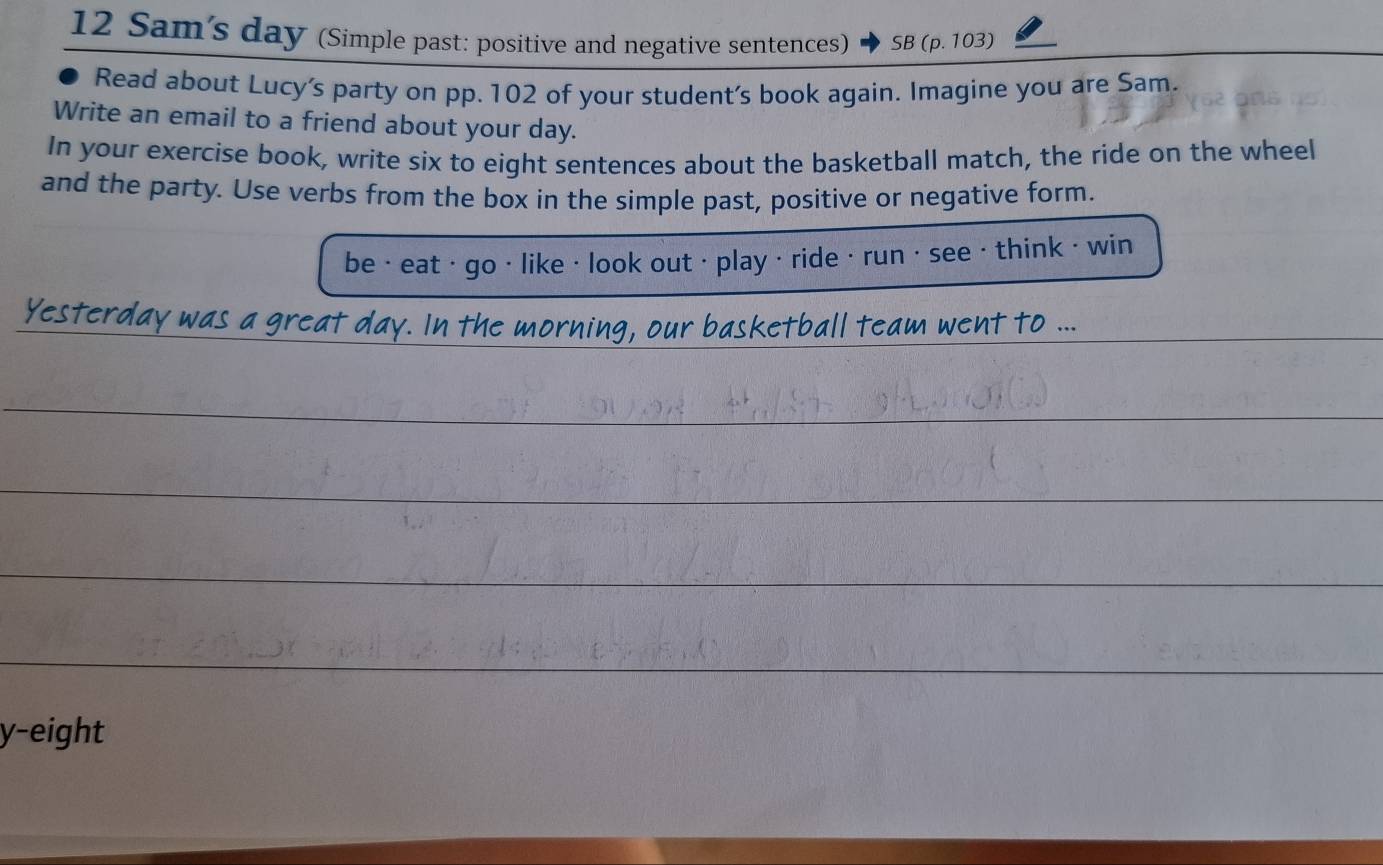 12 Sam's day (Simple past: positive and negative sentences) → SB (p. 103)
● Read about Lucy's party on pp. 102 of your student's book again. Imagine you are Sam.
Write an email to a friend about your day.
In your exercise book, write six to eight sentences about the basketball match, the ride on the wheel
and the party. Use verbs from the box in the simple past, positive or negative form.
be · eat · go · like · look out · play · ride · run · see · think · win
Yesterday was a great day. In the morning, our basketball team went to ...
y-eight